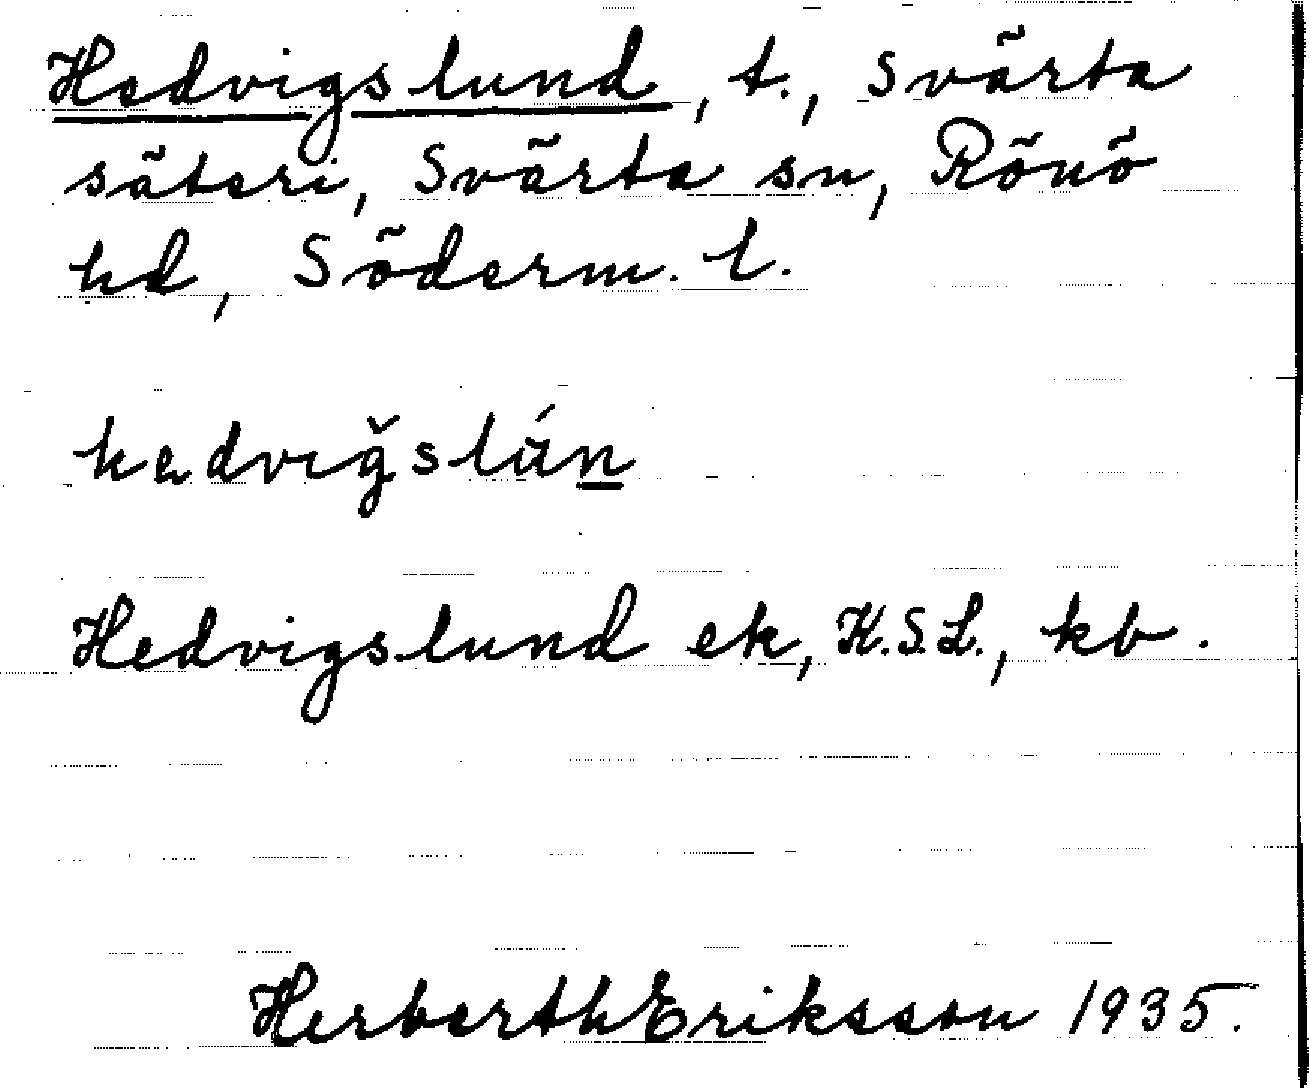 Hedvigslund, t., Svärta
säteri, Svärta sn, Rönö
hd, Söderm. l.
hedviǧslún
Hedvigslund ek, H.S.L., kb.
Herberth Eriksson 1935.